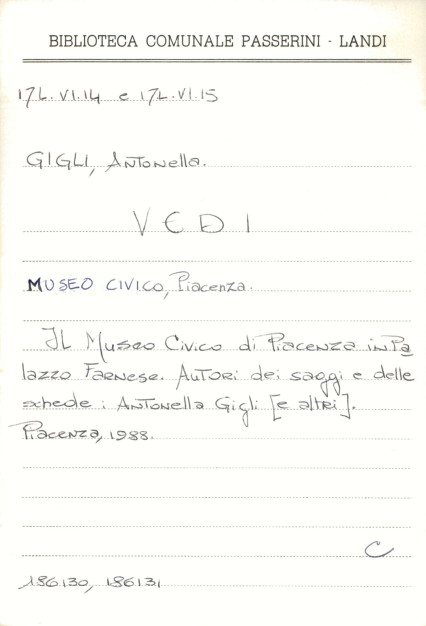 BIBLIOTECA COMUNALE PASSERINI - LANDI
17L.VI.14 e 17L.VI.15
GIGLI, Antonella.
VEDI
MUSEO CIVICO, Piacenza.
IL Museo Civico di Piacenza in Pa
lazzo Farnese. Autori dei saggi e delle
schede: Antonella Gigli [e altri].
Piacenza, 1988.
C
186130, 186131